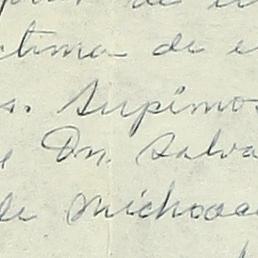 de
ctima de e
s. Supimos
e Dn. Salva
de Michoaca